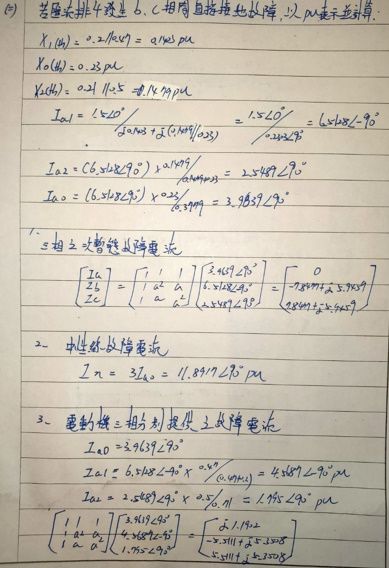 (二) 若匯流排4發生b、c相間直接接地故障,以pu表示並計算.
X1(th) = 0.2//0.47 = 0.1403 pu
X0(th) = 0.23 pu
X2(th) = 0.21//0.5 = 0.1479 pu
Ia1 = 1.5∠0° / j0.1403 + j(0.1479//0.23) = 1.5∠0° / 0.2303∠90° = 6.5128∠-90°
Ia2 = (6.5128∠90°) × 0.1479 / 0.1479+0.23 = 2.5489∠90°
Ia0 = (6.5128∠90°) × 0.23 / 0.3779 = 3.9639∠90°
1.
三相之次暫態故障電流
[Ia Ib Ic] = [1 1 1 1 a² a 1 a a²] [3.9639∠90° 6.5128∠90° 2.5489∠90°] = [0 -7.8477+j5.9459 7.8477+j5.9459]
2. 中性線故障電流
In = 3Ia0 = 11.8917∠90° pu
3. 電動機三相分別提供之故障電流
Ia0 = 3.9639∠90°
Ia1 = 6.5128∠-90° × 0.47 / (0.47+0.2) = 4.5687∠-90° pu
Ia2 = 2.5489∠90° × 0.5 / 0.71 = 1.795∠90° pu
[1 1 1 1 a² a 1 a a²] [3.9639∠90° 4.5687∠-90° 1.795∠90°] = [j1.1902 -5.5111+j5.3508 5.5111+j5.3508]